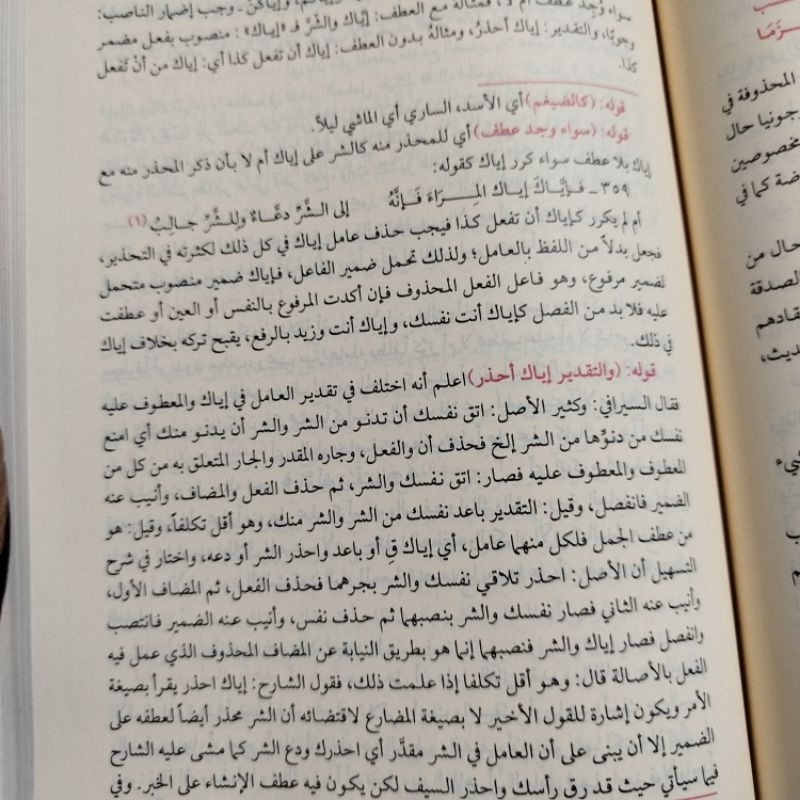 سواء وُجد عطف أم لا، فمثاله مع العطف: إيّاك والشّرّ فـ «إياك»: منصوب بفعل مضمر
وجوبًا، والتقدير: إياك أحذرُ، ومثالهُ بدون العطف: إياك أن تفعل كذا أي: إياك من أنْ تفعل
كذا.
قوله: (كالضيغم) أي الأسد، الساري أي الماشي ليلاً.
قوله: (سواء وجد عطف) أي للمحذر منه كالشر على إياك أم لا بأن ذكر المحذر منه مع
إياك بلا عطف سواء كرر إياك كقوله:
٣٥٩ ـ فـإيَّـاكَ إيـاك المِـــرَاءَ فَـإنَّهُ إلى الشَّرِّ دعَّـاءٌ وللشَّرِّ جـالِبُ(١)
أم لم يكرر كـإياك أن تفعل كذا فيجب حذف عامل إياك في كل ذلك لكثرته في التحذير،
فجعل بدلاً من اللفظ بالعامل؛ ولذلك تحمل ضمير الفاعل، فإياك ضمير منصوب متحمل
لضمير مرفوع، وهو فاعل الفعل المحذوف فإن أكدت المرفوع بالنفس أو العين أو عطفت
عليه فلا بد من الفصل كإياك أنت نفسك، وإياك أنت وزيد بالرفع، يقبح تركه بخلاف إياك
في ذلك.
قوله: (والتقدير إياك أحذر) اعلم أنه اختلف في تقدير العامل في إياك والمعطوف عليه
فقال السيرافي: وكثير الأصل: اتق نفسك أن تدنو من الشر والشر أن يدنو منك أي امنع
نفسك من دنوِّها من الشر إلخ فحذف أن والفعل، وجاره المقدر والجار المتعلق به من كل من
المعطوف والمعطوف عليه فصار: اتق نفسك والشر، ثم حذف الفعل والمضاف، وأنيب عنه
الضمير فانفصل، وقيل: التقدير باعد نفسك من الشر والشر منك، وهو أقل تكلفاً، وقيل: هو
من عطف الجمل فلكل منهما عامل، أي إياك قِ أو باعد واحذر الشر أو دعه، واختار في شرح
التسهيل أن الأصل: احذر تلاقي نفسك والشر بجرهما فحذف الفعل، ثم المضاف الأول،
وأنيب عنه الثاني فصار نفسك والشر بنصبهما ثم حذف نفس، وأنيب عنه الضمير فانتصب
وانفصل فصار إياك والشر فنصبهما إنما هو بطريق النيابة عن المضاف المحذوف الذي عمل فيه
الفعل بالأصالة قال: وهو أقل تكلفا إذا علمت ذلك، فقول الشارح: إياك احذر يقرأ بصيغة
الأمر ويكون إشارة للقول الأخير لا بصيغة المضارع لاقتضائه أن الشر محذر أيضاً لعطفه على
الضمير إلا أن يبنى على أن العامل في الشر مقدَّر أي احذرك ودع الشر كما مشى عليه الشارح
فيما سيأتي حيث قدرق رأسك واحذر السيف لكن يكون فيه عطف الإنشاء على الخبر. وفي
ـزَمَا
المحذوفة في
حال
مخصوصين
كما في
حال من
الصدقة